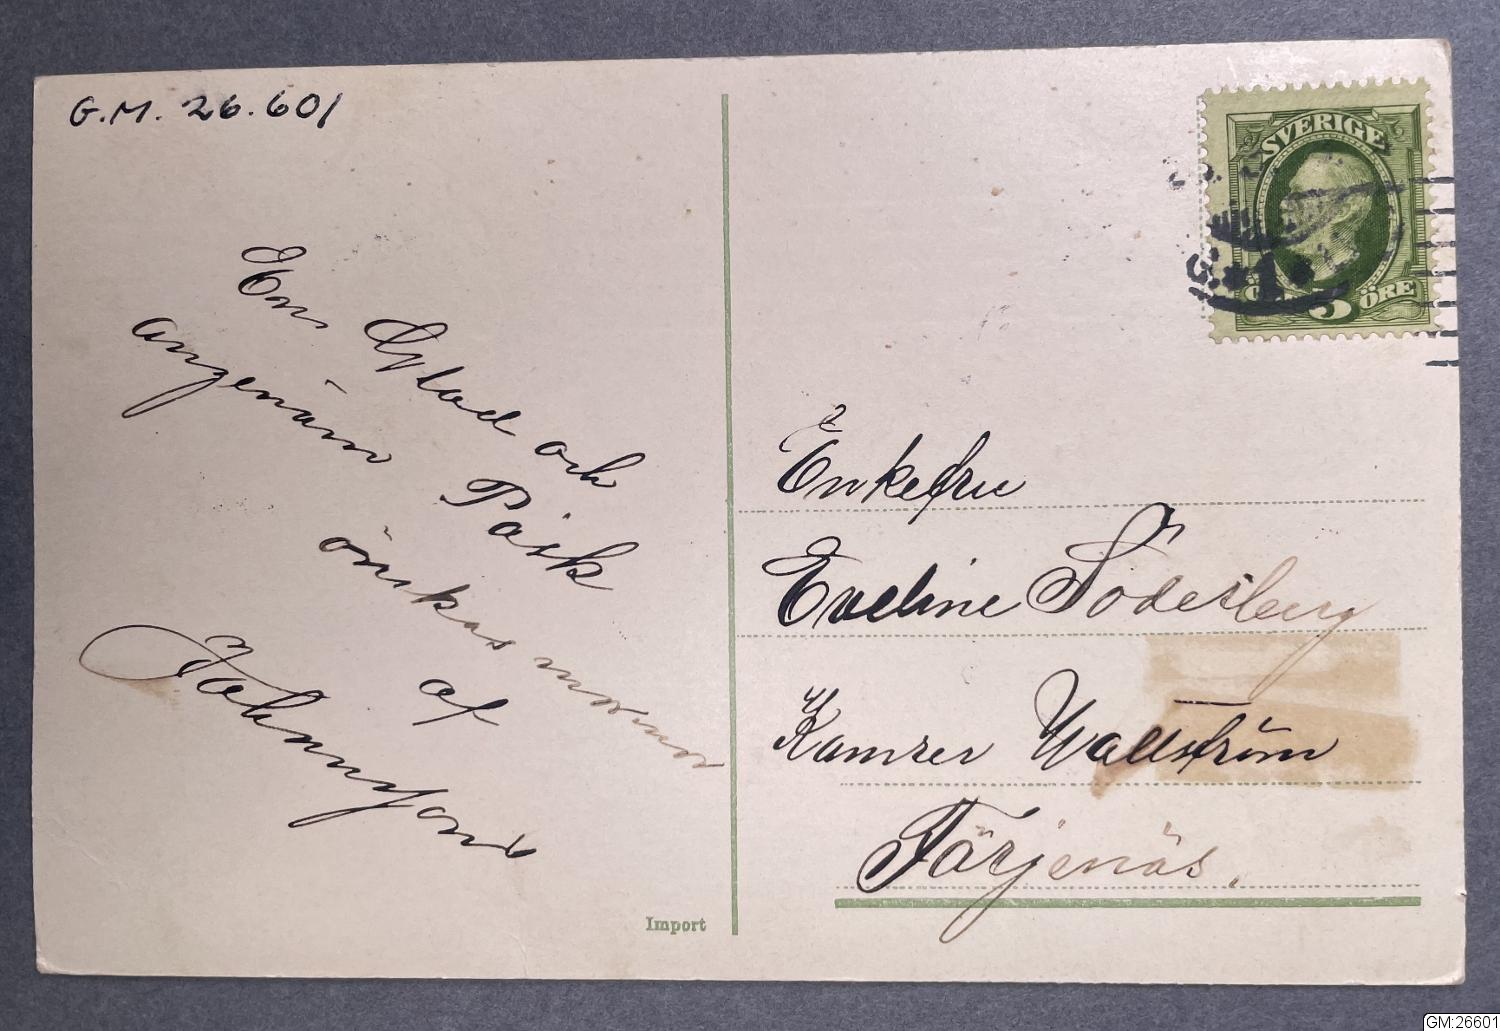 G.M. 26.601
En Glad och
angenäm Påsk
önskas mormor
af
Johnnyson
SVERIGE
5 ÖRE
Enkefru
Eveline Söderberg
Kamrer Wallström
Färjenäs.
Import
GM:26601